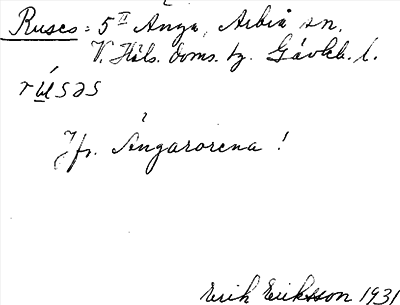 Ruses = 5 II Ånga, Årbia sn.
V. Häls. doms. tg. Gävleb. l.
rúsəs
Jfr. Ångarorena !
Erik Eriksson 1931